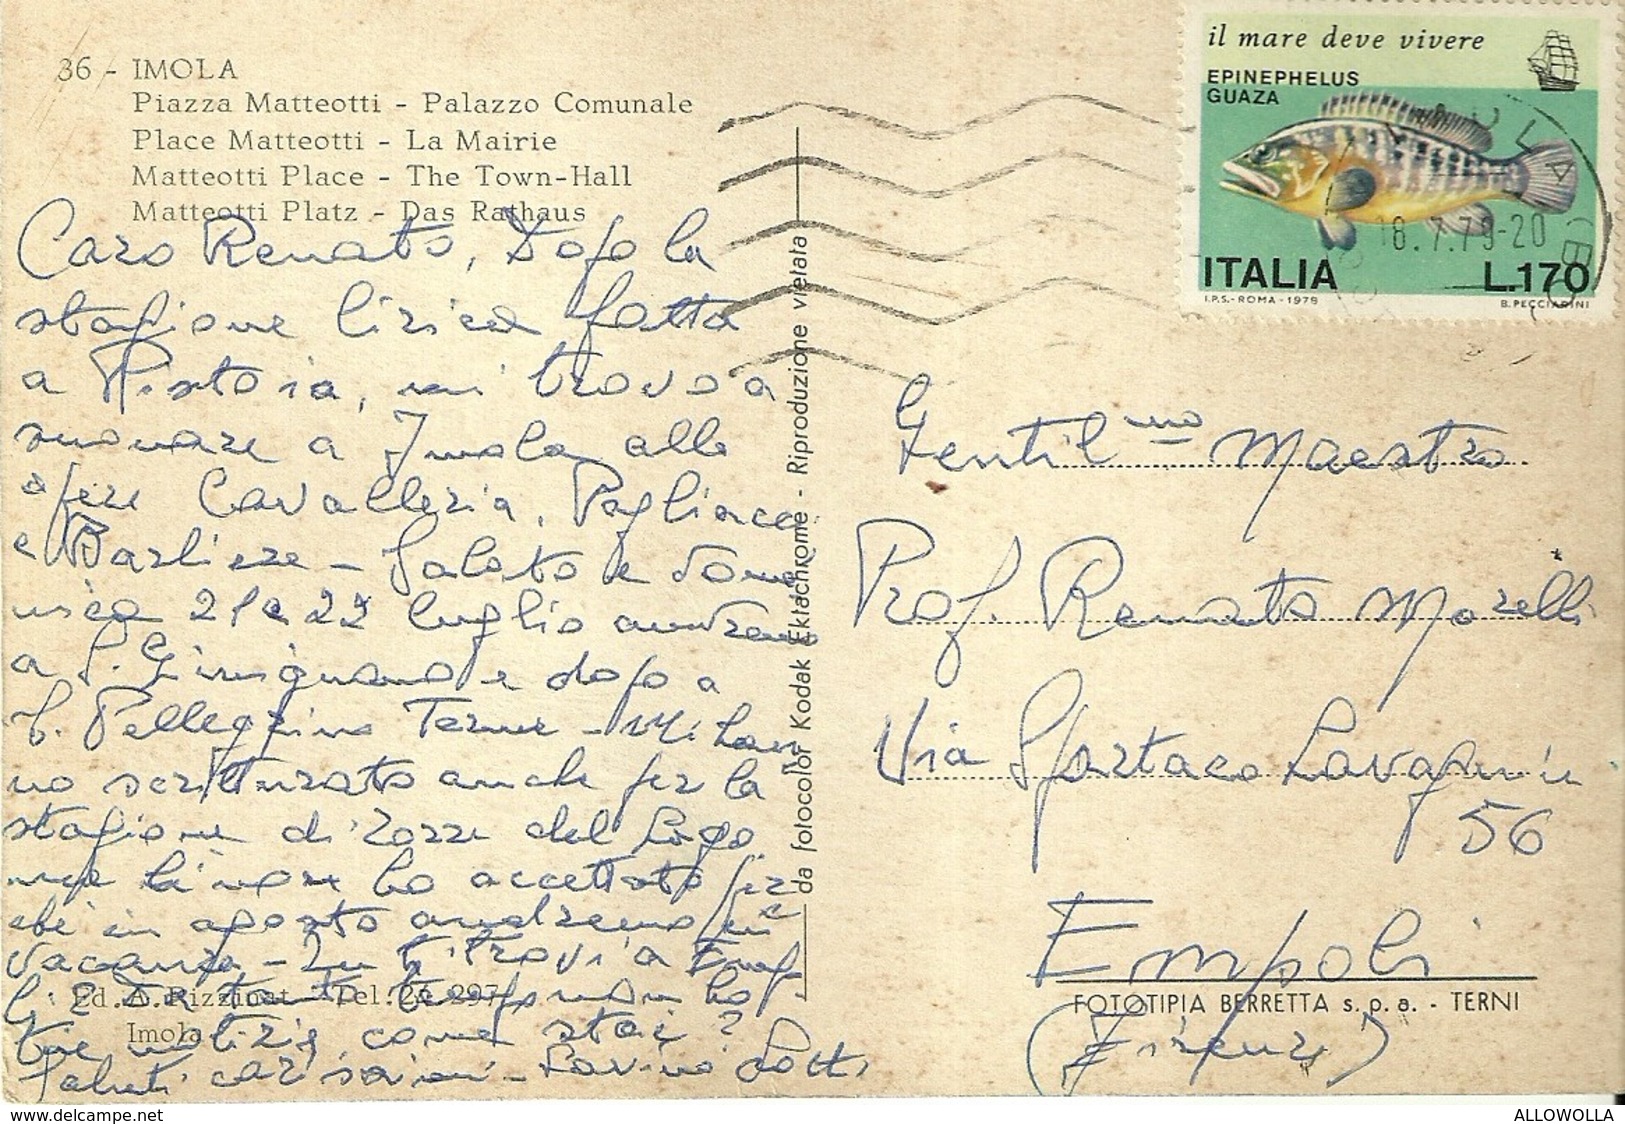 36 - IMOLA
Piazza Matteotti - Palazzo Comunale
Place Matteotti - La Mairie
Matteotti Place - The Town-Hall
Matteotti Platz - Das Rathaus
Caro Renato, Dopo la
stagione lirica fatta
a Pistoia, mi trovo a
suonare a Imola alle
opere Cavalleria, Pagliacci
e Barbiere - Sabato e Dome
nica 21 e 22 luglio andremo
a S. Gimignano e dopo a
S. Pellegrino Terme - Mi han
no scritturato anche per la
stagione di Torre del Lago
ma li non ho accettato per
chè in agosto andremo in
vacanza - Tu ti trovi a Empo
li? È tanto tempo non ho
tue notizie, come stai?
Saluti carissimi - Lavino Lotti
Ed. A. Rizzinat - Tel. 26 297
Imola
da fotocolor Kodak Ektachrome - Riproduzione vietata
il mare deve vivere
EPINEPHELUS
GUAZA
18.7.79-20
ITALIA
L.170
I.P.S.-ROMA-1979
B. PECCIARINI
Gentil.mo Maestro
Prof. Renato Morelli
Via Spartaco Lavagnini
56
Empoli
FOTOTIPIA BERRETTA s.p.a. - TERNI
(Firenze)
www.delcampe.net
ALLOWOLLA